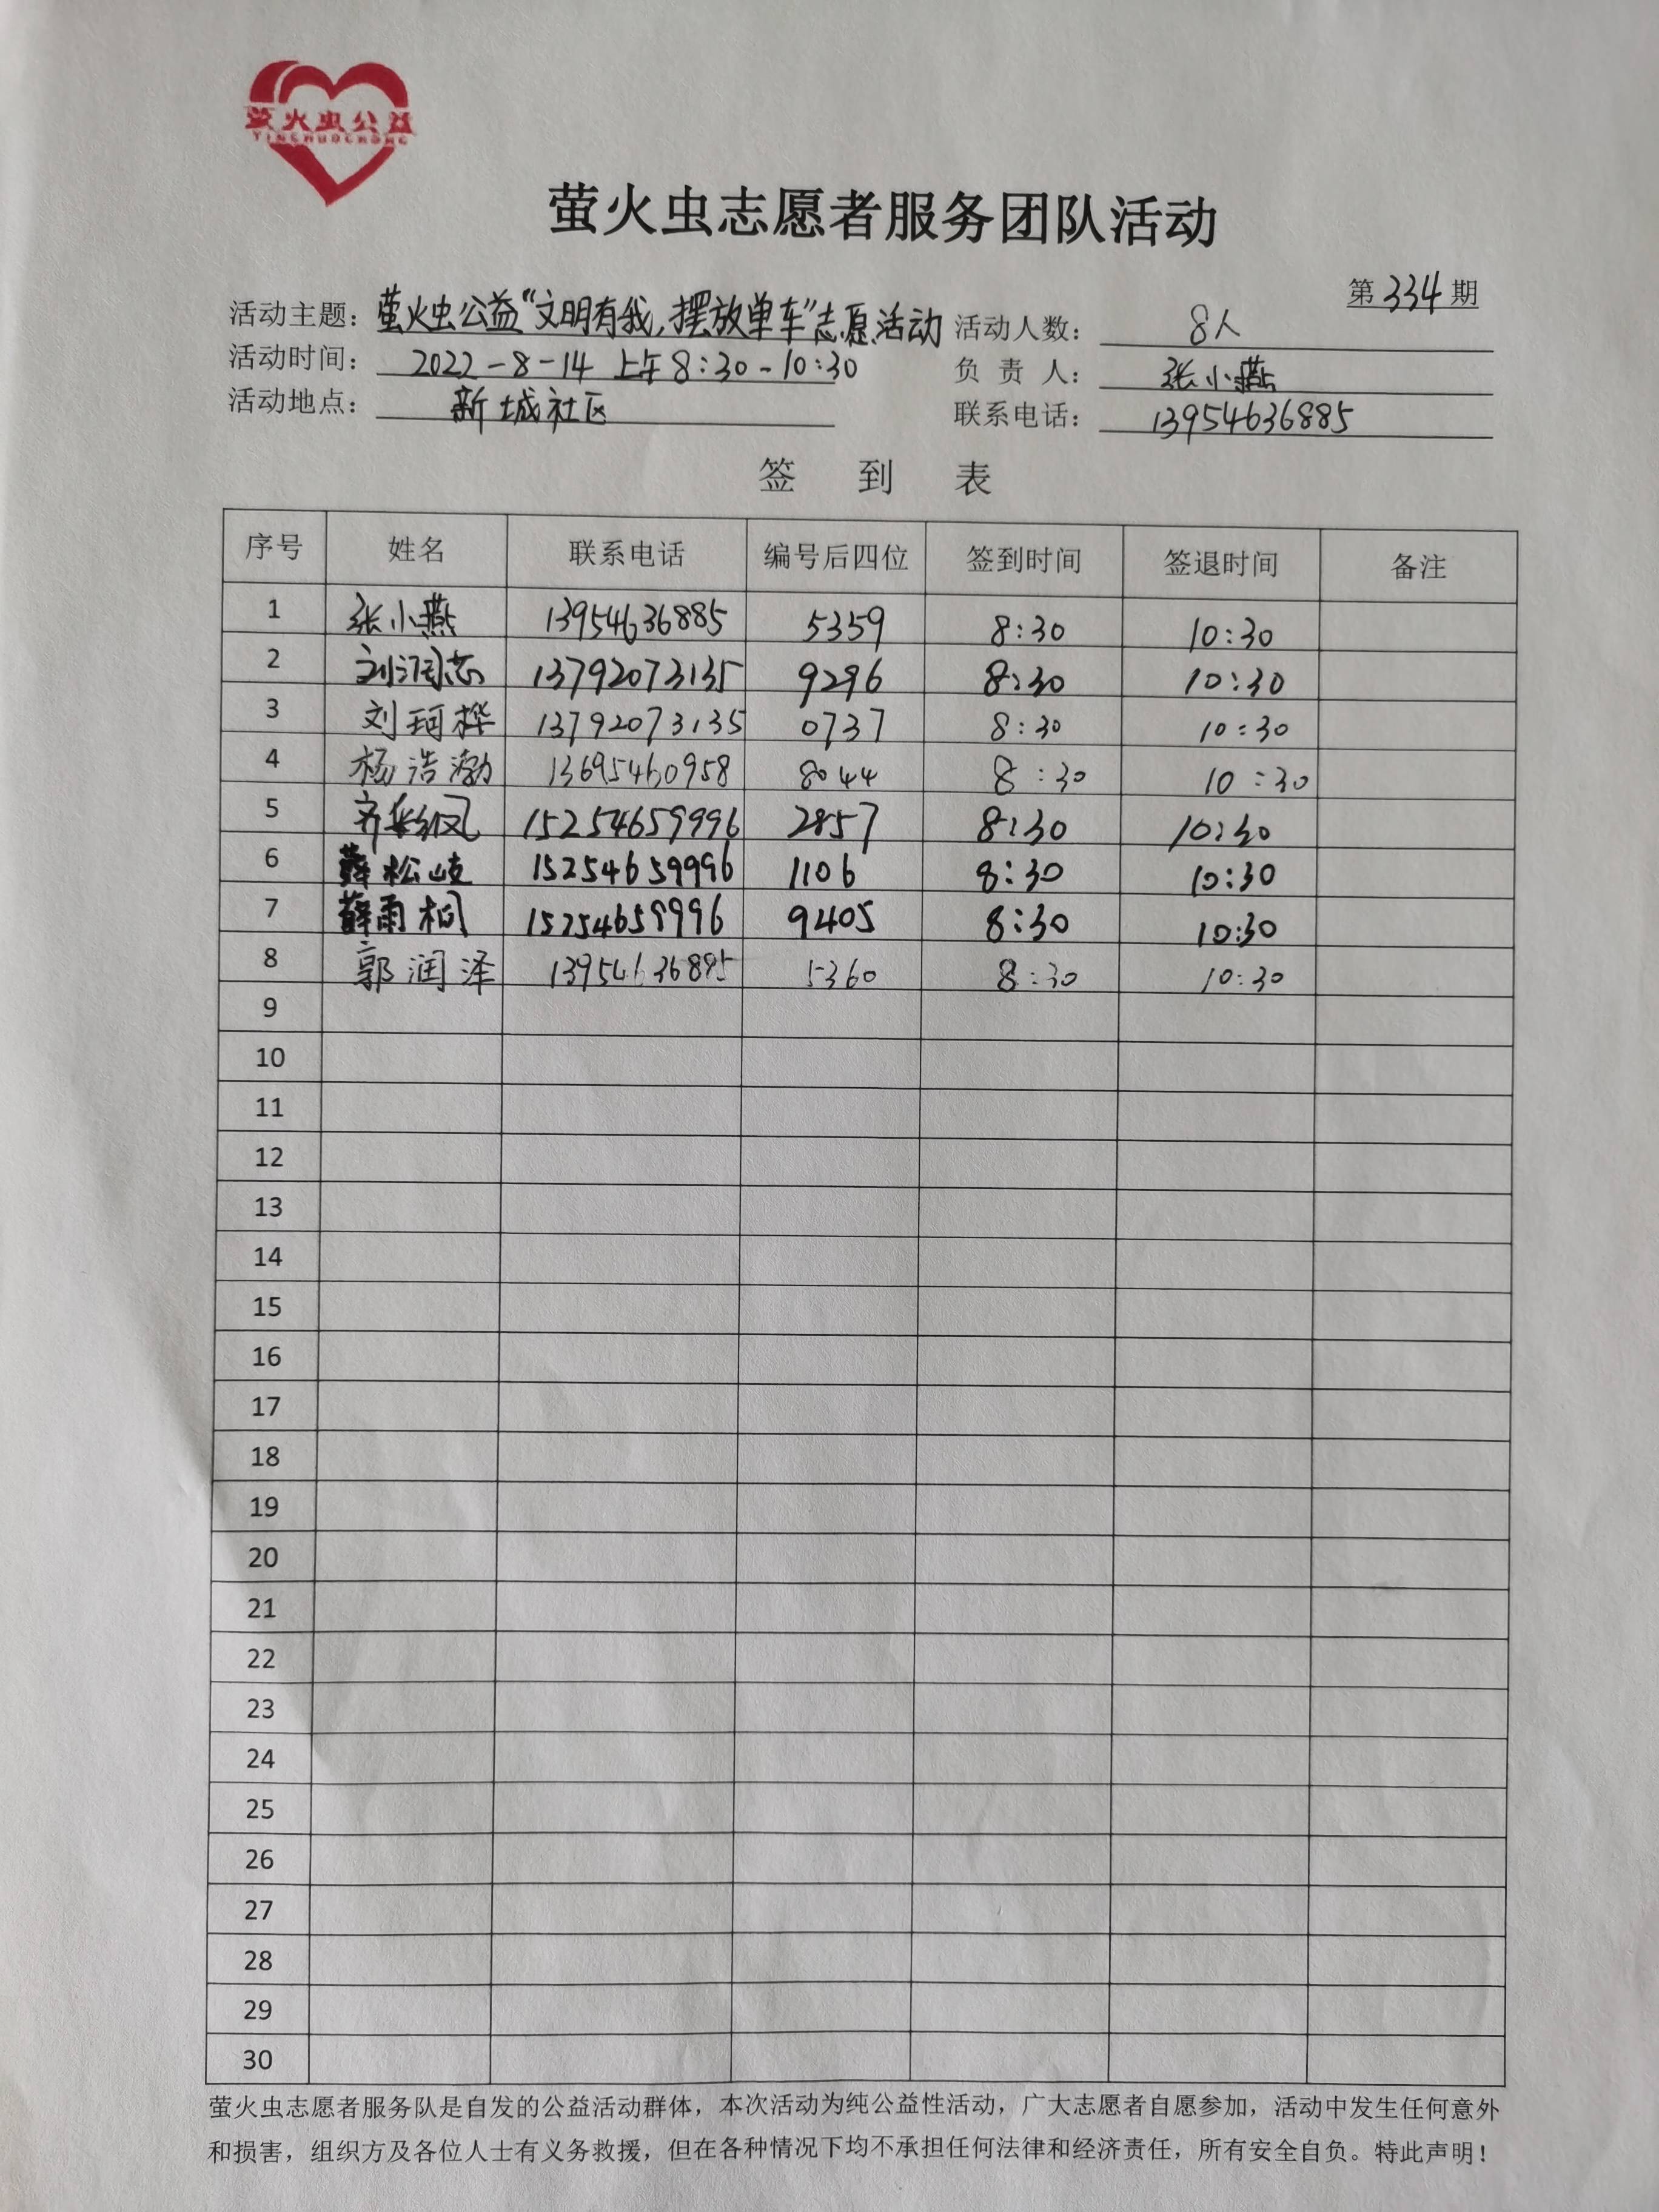 萤火虫公益
YINGHUOCHONG
萤火虫志愿者服务团队活动
第334期
活动主题：萤火虫公益“文明有我，摆放单车”志愿活动 活动人数：8人
活动时间：2022-8-14 上午8:30-10:30 负责人：张小燕
活动地点：新城社区 联系电话：13954636885
签到表
序号 姓名 联系电话 编号后四位 签到时间 签退时间 备注
1 张小燕 13954636885 5359 8:30 10:30
2 刘润志 13792073135 9296 8:30 10:30
3 刘珂桦 13792073135 0737 8:30 10:30
4 杨浩渤 13695460958 8044 8:30 10:30
5 齐彩凤 15254659996 2857 8:30 10:30
6 薛松岐 15254659996 1106 8:30 10:30
7 薛雨桐 15254659996 9405 8:30 10:30
8 郭润泽 13954636885 5360 8:30 10:30
9
10
11
12
13
14
15
16
17
18
19
20
21
22
23
24
25
26
27
28
29
30
萤火虫志愿者服务队是自发的公益活动群体，本次活动为纯公益性活动，广大志愿者自愿参加，活动中发生任何意外
和损害，组织方及各位人士有义务救援，但在各种情况下均不承担任何法律和经济责任，所有安全自负。特此声明！